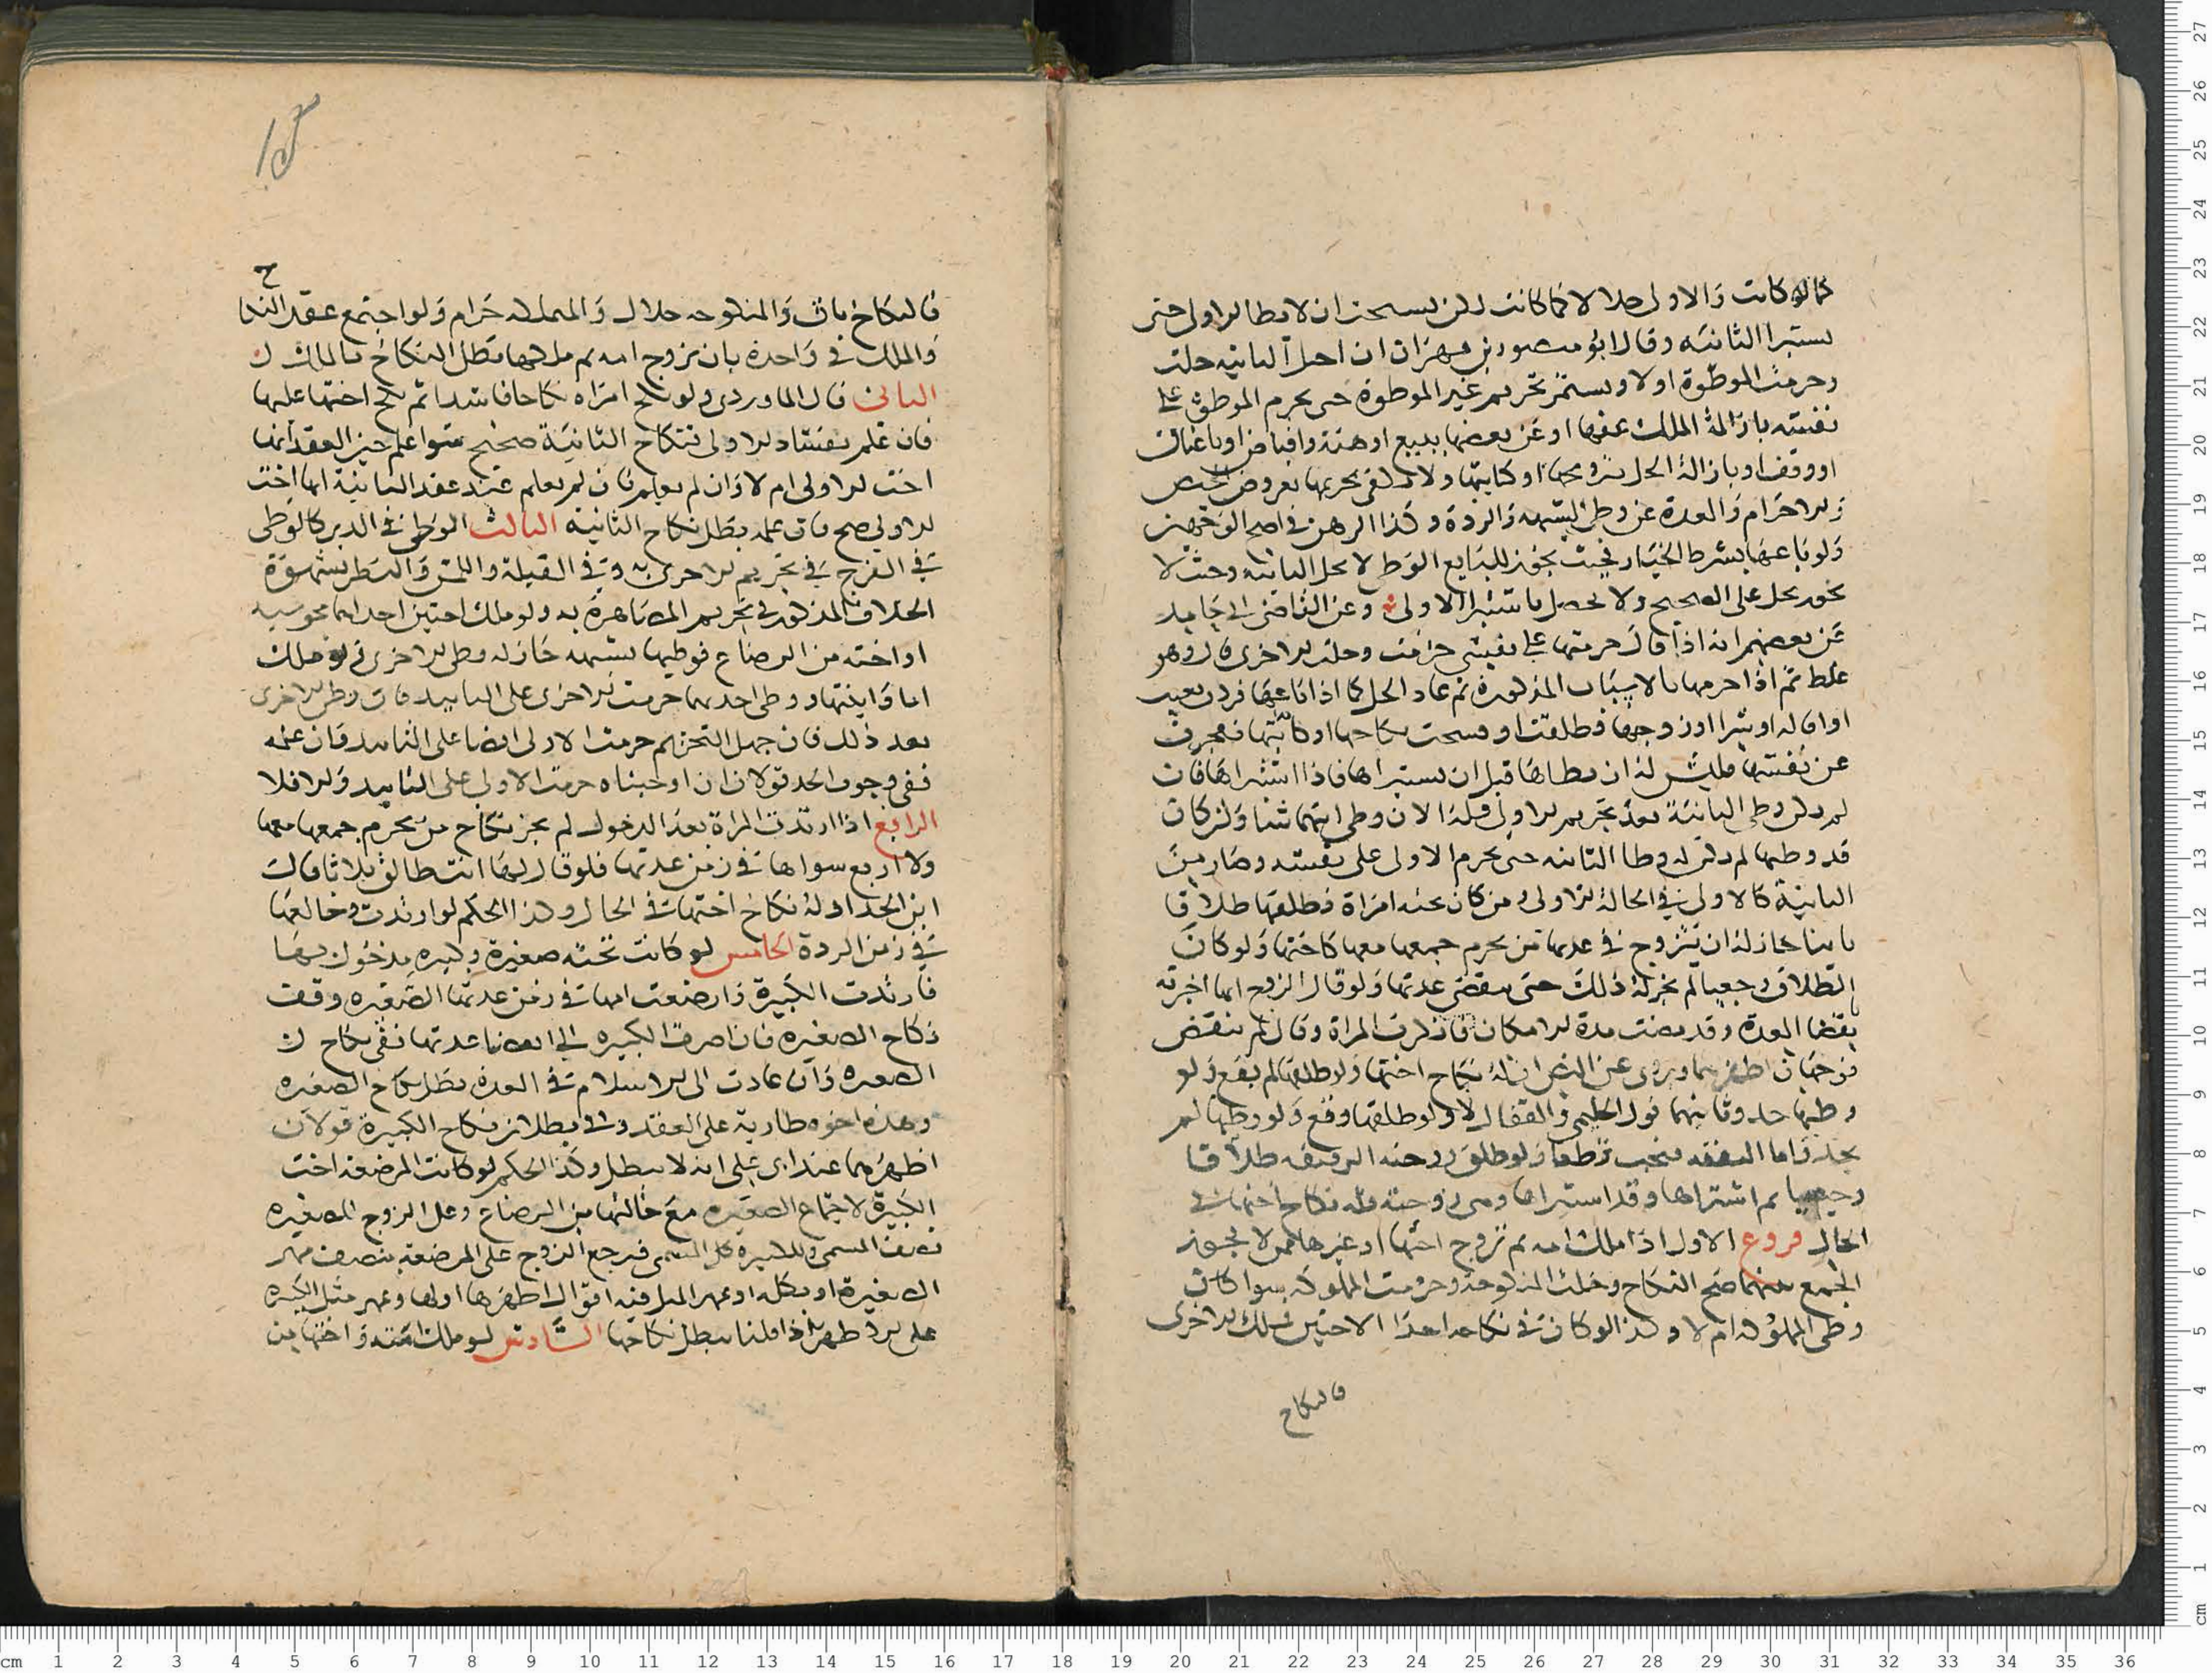 كما لو كانت والاولى حلالا كما كانت لكن يستحب ان لا يطا الاولى حتى
يستبرا الثانية وقال ابو منصور بن مهران ان احبل الثانية حلت
وحرمت الموطوة اولا ويستمر تحريم غير الموطوة حتى يحرم الموطوة على
نفسه بازالة الملك عنها او عن بعضها ببيع او هبة واقباض او باعتاق
او وقف او بازالة الحل بتزويجها او كتابتها ولا يكفي تحريمها بعروض الحيض
والاحرام والعدة عن وطئ الشبهة والردة وكذا الرهن في اصح الوجهين
ولو باعها بشرط الخيار فحيث يجوز للبايع الوطي لا تحل الثانية وحيث لا
يجوز يحل على الصحيح ولا يحصل باستبرا الاولى وعن القاضي ابي حامد
عن بعضهم انه اذا قال حرمتها على نفسي حرمت وحلت الاخرى قال وهو
غلط ثم اذا حرمها بالاسباب المذكورة ثم عاد الحل كما اذا باعها فردت بعيب
او اقاله او شرا او زوجها فطلقت او فسحت نكاحها او كاتبها فعجزت
عن نفسها فليس له ان يطاها قبل ان يستبراها فاذا استبراها فان
لم يكن وطي الثانية بعد تحريم الاولى فله الان وطي ايتهما شا وان كان
قد وطيها لم يكن له وطا الثانية حتى يحرم الاولى على نفسه وصار من
الثانية كالاولى في الحالة الاولى ومن كان عنه امراة فطلقها طلاقا
باينا جاز له ان يتزوج في عدتها من يحرم جمعها معها كاختها ولو كان
الطلاق رجعيا لم يجز له ذلك حتى ينقضي عدتها ولو قال الزوج انها اخبرته
بقضا العدة وقد مضت مدة الامكان فانكرت المراة وقال لم ينقض
فوجهان اظهرهما وروى عن النص ان له نكاح اختها ولو طلقها لم يقع ولو
وطيها حد وثانيهما قول الحليمي والقفال لا ولو طلقها وقع ولو وطيها لم
يحد واما النفقة فيجب قطعا ولو طلق زوجته الرقيقة طلاقا
رجعيا ثم اشتراها وقد استبراها ومى زوجته فله نكاح اختها في
الحال فروع الاول اذا ملك امة ثم تزوج اختها او غيرها ممن لا يجوز
الجمع بينهما صح النكاح وحلت المنكوحة وحرمت المملوكة سوا كان
وطي المملوكة ام لا وكذا لو كان في نكاحه احدا الاختين فملك الاخرى
فالنكاح
فالنكاح باق والمنكوحه حلال والمملوكه حرام ولو اجتمع عقد النكاح
والملك في واحدة بان تزوج امه ثم ملكها بطل النكاح بالملك
الثاني قال الماوردي ولو نكح امراه نكاحا فاسدا ثم نكح اختها عليها
فان علم بفساد الاولى فنكاح الثانية صحيح سوا علم حين العقد انها
اخت الاولى ام لا وان لم يعلم فان لم يعلم عند عقد الثانية انها اخت
الاولى صح فان علمه بطل نكاح الثانية الثالث الوطئ في الدبر كالوطي
في الفرج في تحريم الاخرى به وفي القبلة واللمس والنظر بشهوة
الخلاف المذكور في تحريم المصاهرة به ولو ملك اختين احداهما مجوسيه
او اخته من الرضاع فوطيها بشبهه جاز له وطي الاخرى ولو ملك
اما وابنتها ووطي احديهما حرمت الاخرى على التابيد فان وطي الاخرى
بعد ذلك فان جهل التحريم حرمت الاولى ايضا على التابيد وان علمه
ففي وجوب الحد قولان ان اوجبناه حرمت الاولى على التابيد والا فلا
الرابع اذا ارتدت المراة بعد الدخول لم يجز نكاح من يحرم جمعها معها
ولا اربع سواها في زمن عدتها فلو قال لها انت طالق ثلاثا قال
ابن الحداد له نكاح اختها في الحال وكذا الحكم لو ارتدت وخالعها
في زمن الردة الخامس لو كانت تحته صغيرة وكبيره مدخول بها
فارتدت الكبيرة وارضعت امها في زمن عدتها الصغيره وقف
نكاح الصغيره فان اصرت الكبيره الى انقضا عدتها بقي نكاح
الصغيره وان عادت الى الاسلام في العدة بطل نكاح الصغيره
وهذه اخوه طارية على العقد وفي بطلان نكاح الكبيرة قولان
اظهرهما عند ابي علي انه لا يبطل وكذا الحكم لو كانت المرضعة اخت
الكبيرة لاجتماع الصغيره مع خالتها من الرضاع وعلى الزوج للصغيره
نصف المسمى وللكبيرة كل المسمى فيرجع الزوج على المرضعة بنصف مهر
الصغيرة او بكله او بمهر المثل فيه اقوال اظهرها اولها وبمهر مثل الكبيره
على الاظهر اذا قلنا يبطل نكاحها السادس لو ملك امته واختها من